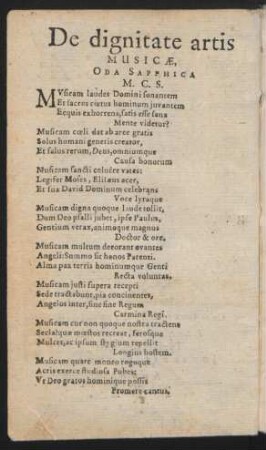 De dignitate artis
MUSICÆ,
ODA SAPPHICA
M. C. S.
MUsicam laudet Domini sonantem
Et sacros cœtus hominum juvantem
Ecquis exhortens, satis esse sana
Mente videtur?
Musicam cœli dat ab arce gratis
Solus humani generis creator,
Et salus rerum, Deus, omniumque
Causa bonorum
Musicam sancti coluêre vates:
Legifer Moses, Elitæus acer,
Et suus David Dominum celebrans
Voce lyraque
Musicam digna quoque laude tollit,
Dum Deo psalli jubet, ipse Paulus,
Gentium verax, animoque magnus
Doctor & ore.
Musicam multum decorant ovantes
Angeli: Summo sit honos Parenti.
Alma pax terris hominumque Genti
Recta voluntas.
Musicam justi supera recepti
Sede tractabunt, pia concinentes,
Angelos inter, sine fine Regum
Carmina Regi.
Musicam cur non quoque nostra tractens
Secla? quæ mœstos recreat, ferosque
Mulcet, ac ipsum stygium repellit
Longius hostem.
Musicam quare moneo rogoque
Acris exerce studiosa Pubes:
Vt Deo gratos hominique possis
Promere cantus.